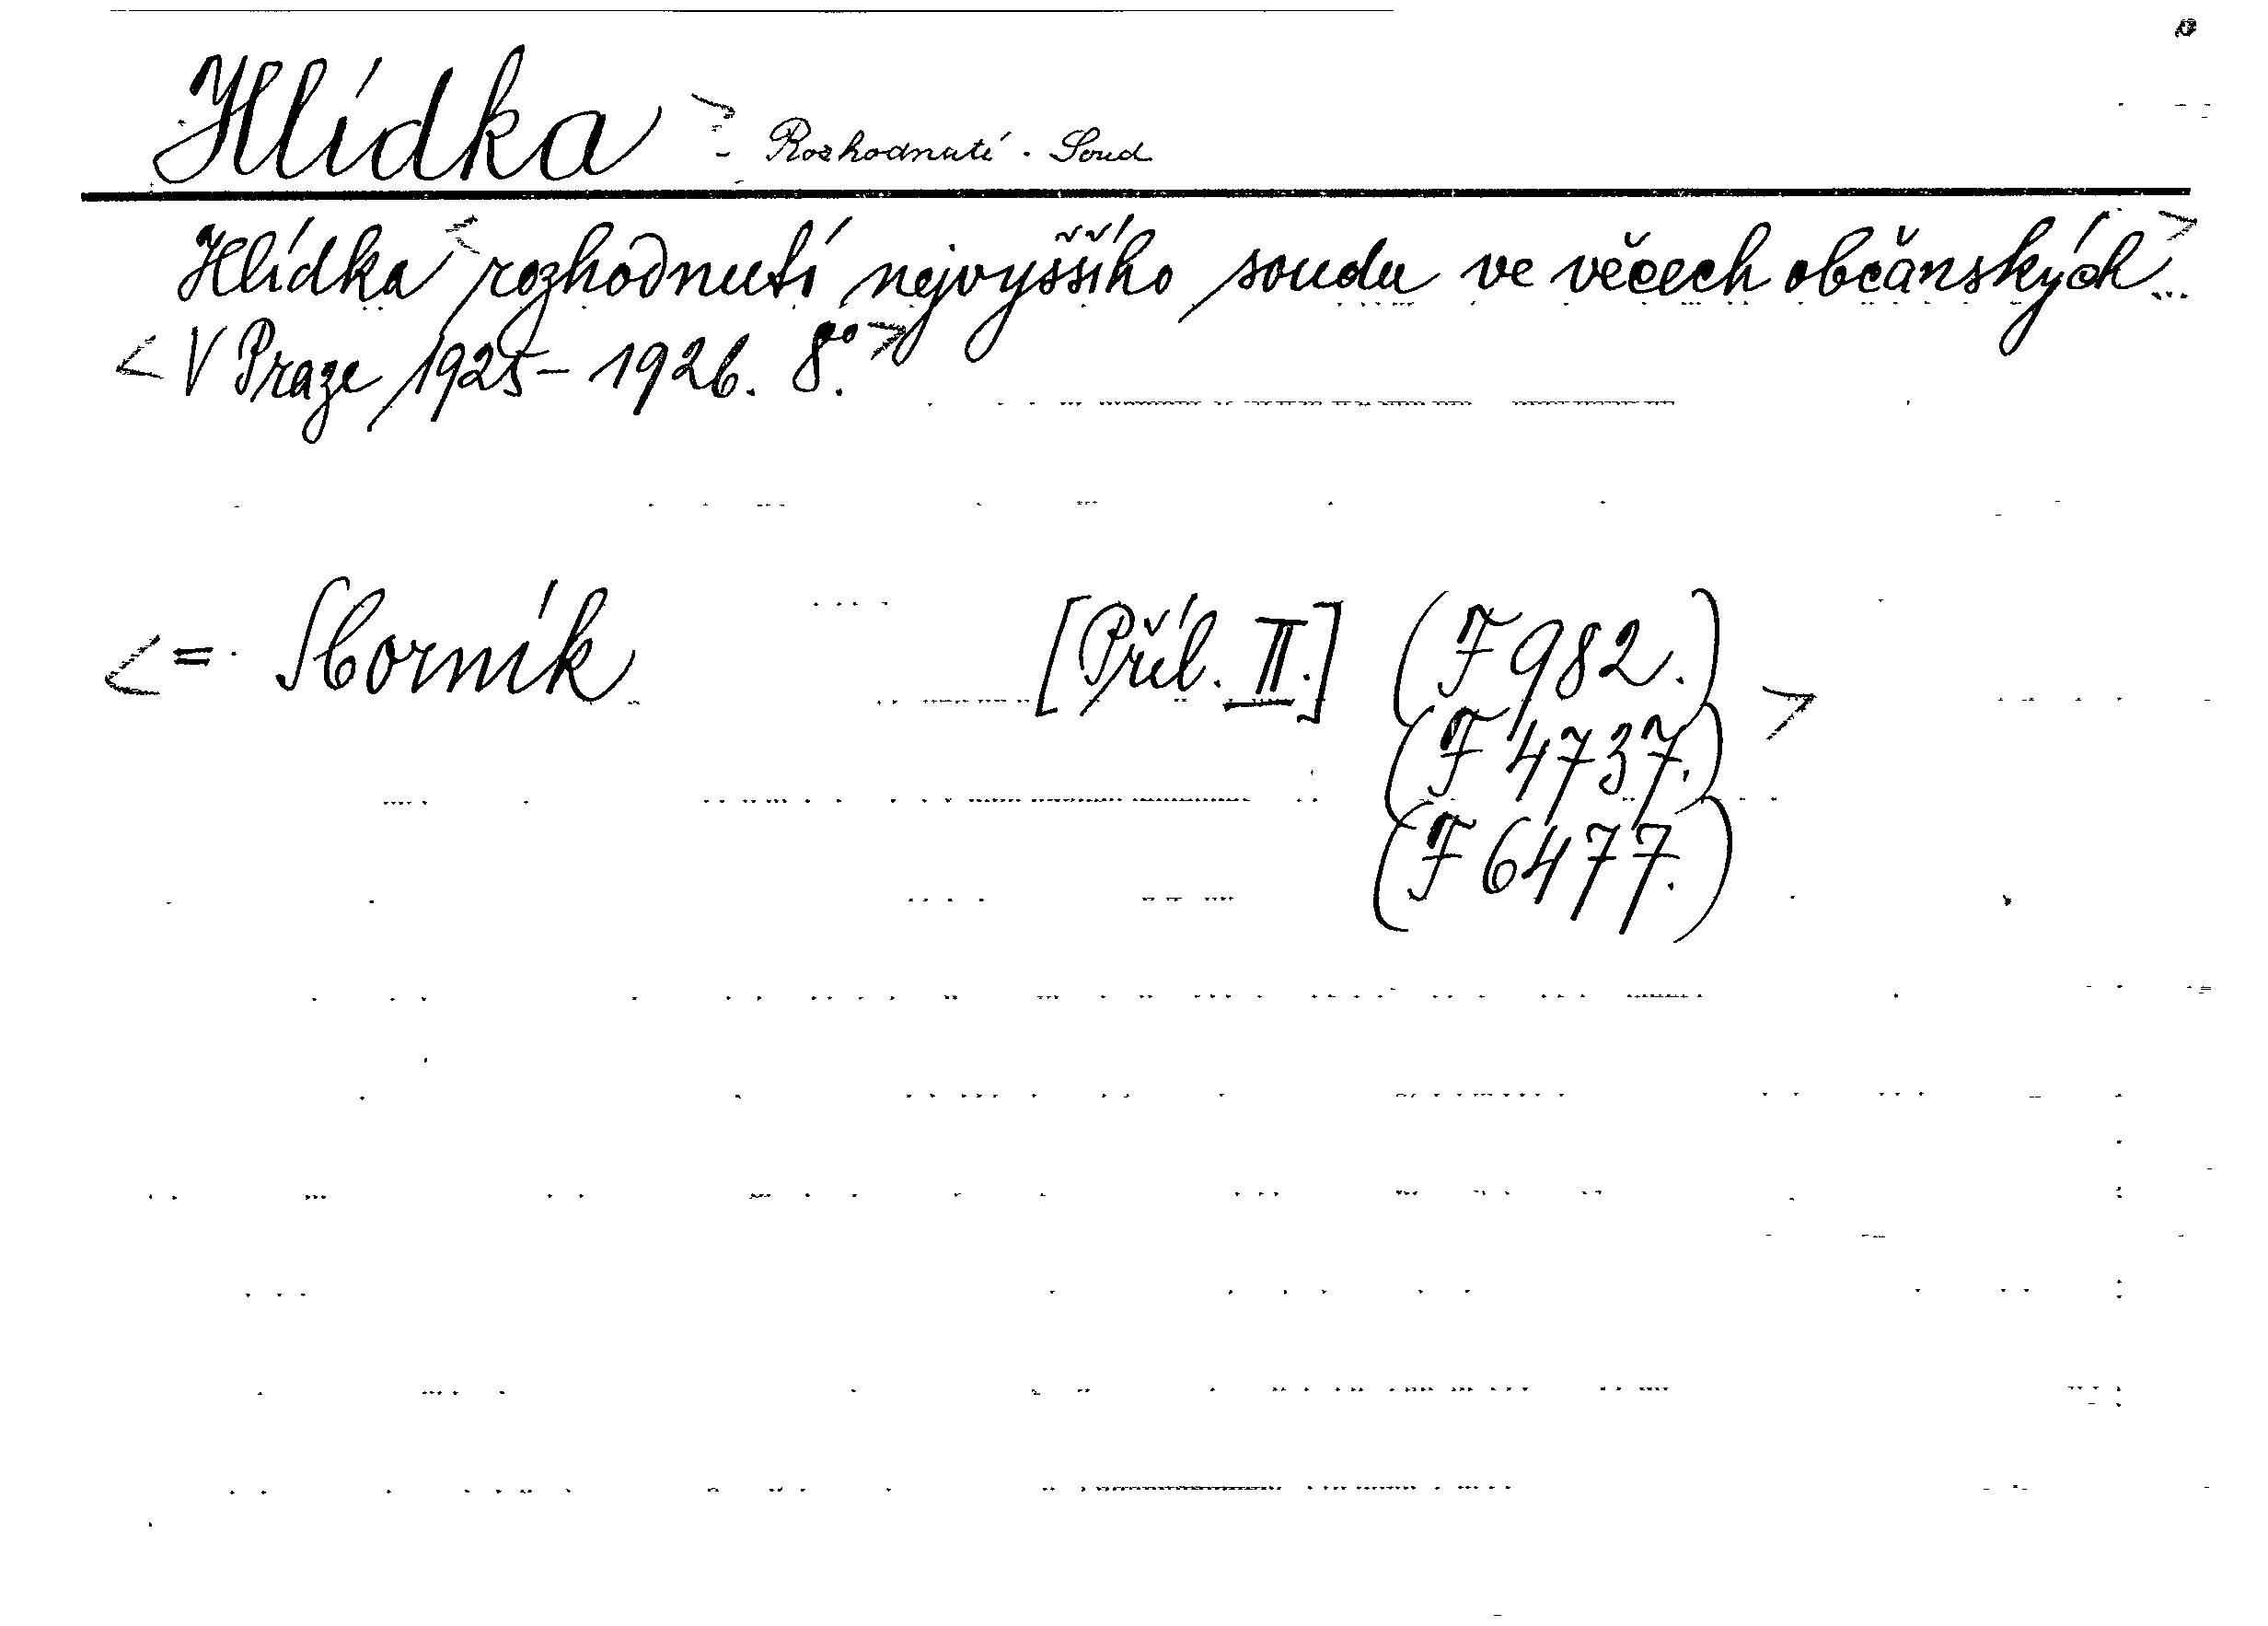 Hlídka > - Rozhodnutí - Soud
Hlídka < rozhodnutí nejvyššího soudu ve věcech občanských >
< V Praze 1925 - 1926. 8°. >
< = Sborník [Příl. II.] (F 982.) >
(F 4737.)
(F 6477.)